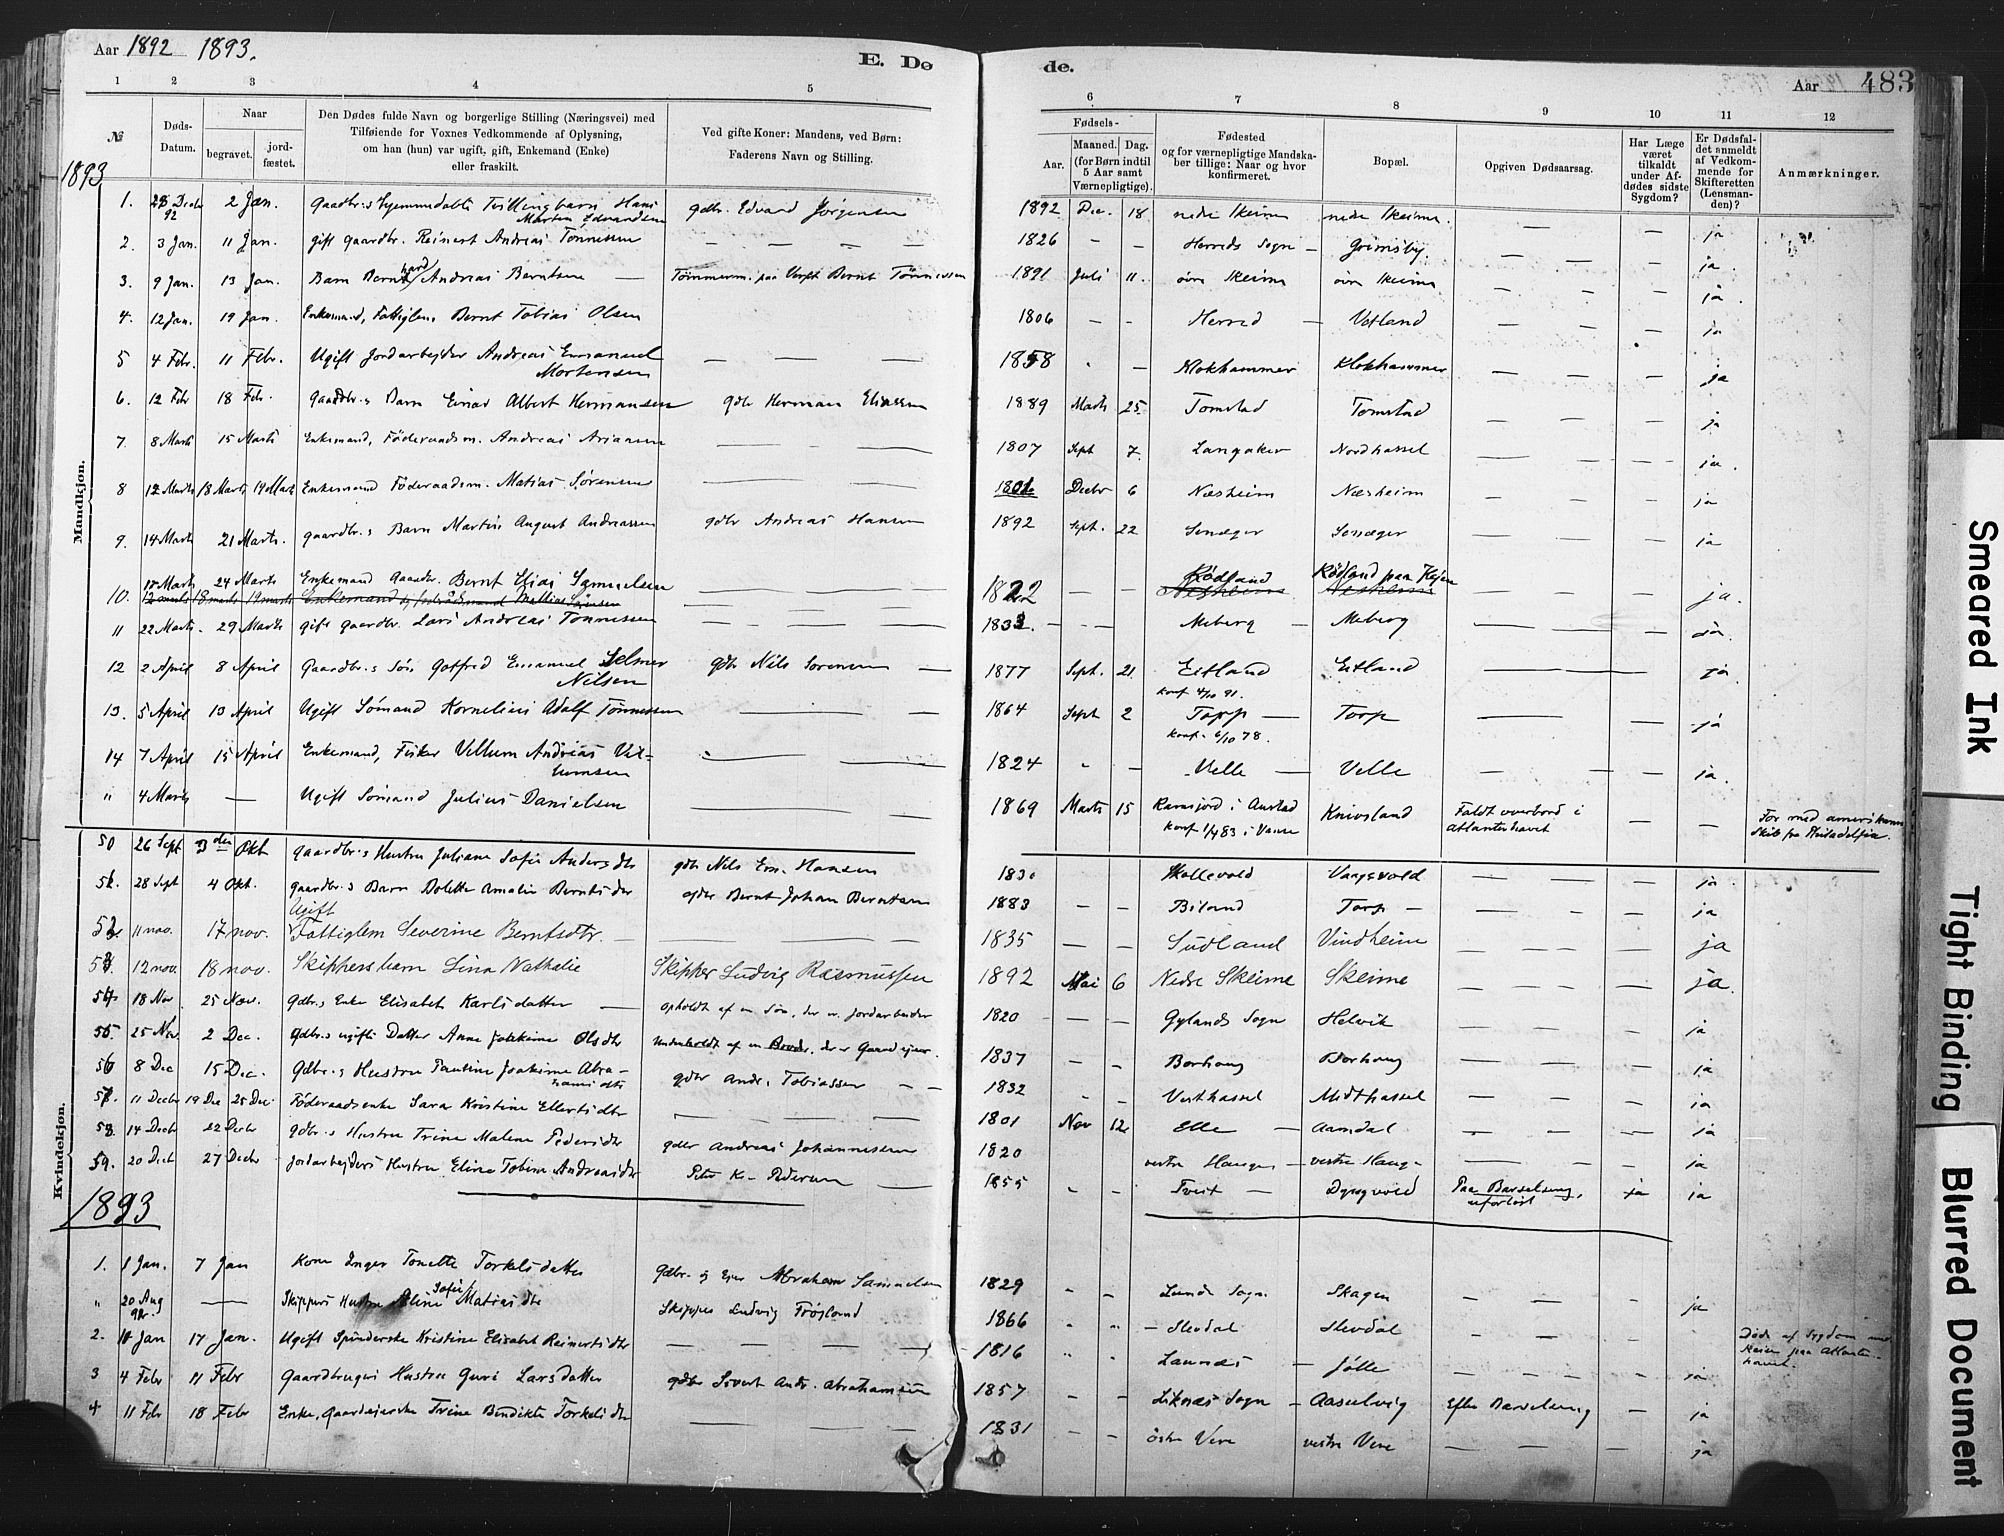 Aar 1892 1893.
E. Dø
de.
Aar 483
1 2 3 4 5
6 7 8 9 10 11 12
№
Døds-Datum.
Naar
begravet.
jord-fæstet.
Den Dødes fulde Navn og borgerlige Stilling (Næringsvei) med
Tilføiende for Voxnes Vedkommende af Oplysning,
om han (hun) var ugift, gift, Enkemand (Enke)
eller fraskilt.
Ved gifte Koner: Mandens, ved Børn:
Faderens Navn og Stilling.
Fødsels-
Aar.
Maaned. Dag.
(for Børn indtil
5 Aar samt
Værnepligtige).
Fødested
og for værnepligtige Mandska-
ber tillige: Naar og hvor
konfirmeret.
Bopæl.
Opgiven Dødsaarsag.
Har Læge
været
tilkaldt
under Af-
dødes sidste
Sygdom?
Er Dødsfal-
det anmeldt
af Vedkom-
mende for
Skifteretten
(Lensman-
den)?
Anmærkninger.
1893
Mandkjøn.
1. 28 Decbr 92 2 Jan. Gaardbr.s hjemmedøbte Tvillingbarn Hans Martin Edvardsen gdbr. Edvard Jørgensen 1892 Dec. 18. nedre Skeime nedre Skeime. — — ja
2. 3 Jan. 11 Jan. gift gaardbr. Reinert Andreas Tønnessen — — — — 1826 — — Herreds Sogn — Grimsby. — — — ja.
3. 9 Jan. 13 Jan. Barn Bernhard Andreas Berntsen — Tømmerm. paa Verft Bernt Tønnessen 1891 Juli 11. øvre Skeime øvre Skeime — — — ja.
4. 12 Jan. 19 Jan. Enkemand, Fattiglem Bernt Tobias Olsen 1806 — — Herred — Vatland — — — ja
5 4 Febr. 11 Febr. Ugift Jordarbejder Andreas Emanuel Mortensen — — — 1858 — Klokhammer Klokhammer — — — ja
6. 12 Febr 18 Febr. Gaardbr.s Barn Einar Albert Hermansen gdbr Herman Eliassen 1889 Marts 25. Tomstad Tomstad — — — ja
7. 8 Marts 15 Marts Enkemand, Føderaadsm. Andreas Ariansen — — 1807 Sept 7. Langaker Nordhassel — — — ja.
8 12 Marts 18 Marts 19 Marts Enkemand Føderaadsm. Matias Sørensen — — 1801 Decbr 6 Næsheim Næsheim — — — ja
9. 14 Marts 21 Marts. gaardbr.s Barn Martin August Andreassen gdbr Andreas Hansen 1892 Sept. 22 — — — ja
10. 17 Marts 24 Marts Enkemand Gaardbr. Bernt Elias Samuelsen — 1822 — — Rödland Rödland paa — — — ja.
11 22 Marts. 29 Marts gift gaardbr. Lars Andreas Tønnessen — 1833. — — Meberg — Meberg — — ja.
12 2 April 8 April Gaardbr.s Søn Gotfred Emanuel Selmer Nilsen gdbr Nils Sørensen — 1877 Sept. 21 Eitland konf 4/10 91. Eitland — — ja.
13. 5 April 13 April Ugift Sømand Kornelius Adolf Tønnessen — — 1864 Sept 2 Torp — konf. 6/10 78. Torp — — — ja
14 7 April 15 April Enkemand, Fisker Villum Andreas Villumsen — — 1824 — Velle — Velle — — — ja.
" 4 Marts — Ugift Sømand Julius Danielsen — 1869 Marts 15 Ramsjord i Austad konf 1/4 83 i Vanse Knivsland Faldt overbord i Atlanterhavet — — For med amerikansk Skib fra Philadelfia.
Kvindekjøn.
50 26 Sept 3 den Okt gaardbr.s Hustru Juliane Sofie Andersdtr gdbr Nils Em. Hansen 1830 Skollevold Vaagevold — — — ja
51. 28 Sept 4 Okt. gaardbr.s Barn Dolette Amalie Berntsdtr gdbr Bernt Johan Berntsen 1883 — — Biland Torp — — — — ja
52 11 nov. 17 nov. Ugift Fattiglem Severine Berntsdtr. — — — 1835 — — Sudland Vindheim — — — ja
53. 12 nov. 18 nov. Skippersbarn Lina Nathalie Skipper Ludvig Rasmussen 1892 Mai 6 Nedre Skeime Skeime — — — ja.
54 18 Nov 25 Nov. Gdbr.s Enke Elisabet Karlsdatter — opholdt af en Søn, der er Jordarbeider 1820 — — Gylands Sogn Helvik — — — ja
55. 25 Nov. 2 Dec. Gdbr.s ugifte Datter Anne Jakobine Olsdtr Underholdt af en Broder, der er Gaardejer. 1837 — — Borhaug Borhaug — — — ja
56 8 Dec 15 Dec. Gdbr.s Hustru Pauline Joakime Abrahamsdtr gdbr Andr. Tobiassen — — 1832 — Vesthassel Midthassel — — — ja
57. 11 Decbr 19 Dec 25 Dec. Føderaadsenke Sara Kristine Ellertsdtr — — — 1801 Nov 12 Elle — Aamdal — — — ja
58. 14 Decbr 22 Decbr Gdbr.s Hustru Trine Malene Pedersdtr gdbr Andreas Johannessen 1820 vestre Hauge — vestre Hauge — — — — ja
59. 20 Decb 27 Decbr Jordarbejders Hustru Eline Tobine Andreasdtr Peter K. Pedersen — 1855 — Tveit — Dyngvold Paa Barselseng, uforløst ja ja
1893
1. 1 Jan. 7 Jan Kone Inger Tonette Torkelsdatter Gdbr. og Ejer Abraham Samuelsen 1829 — Lunde Sogn Skagen — — — ja
" 20 Aug 92. — Skippers Hustru Eline Sofie Matiasdtr Skipper Ludvig Frøjsland 1866 — Stevdal Stevdal — — — Døde af Sygdom under Reisen paa Atlanterhavet.
2. 10 Jan 17 Jan. Ugift Spinderske Kristine Elisabet Reinertsdtr — — — — 1816 Launæs — Jølle — — — ja
3 4 Febr 11 Febr Gaardbrugers Hustru Guri Larsdatter gdbr Sivert Andr. Abrahamsen 1857 — — Liknæs Sogn — Aaselvig Efter Barselseng — ja
4 11 Febr 18 Febr Enke, Gaardejerske Trine Bendikte Torkelsdtr — — 1831 — — østre Vere vestre Vere — — — ja
Smeared Ink
Tight Binding
Blurred Document